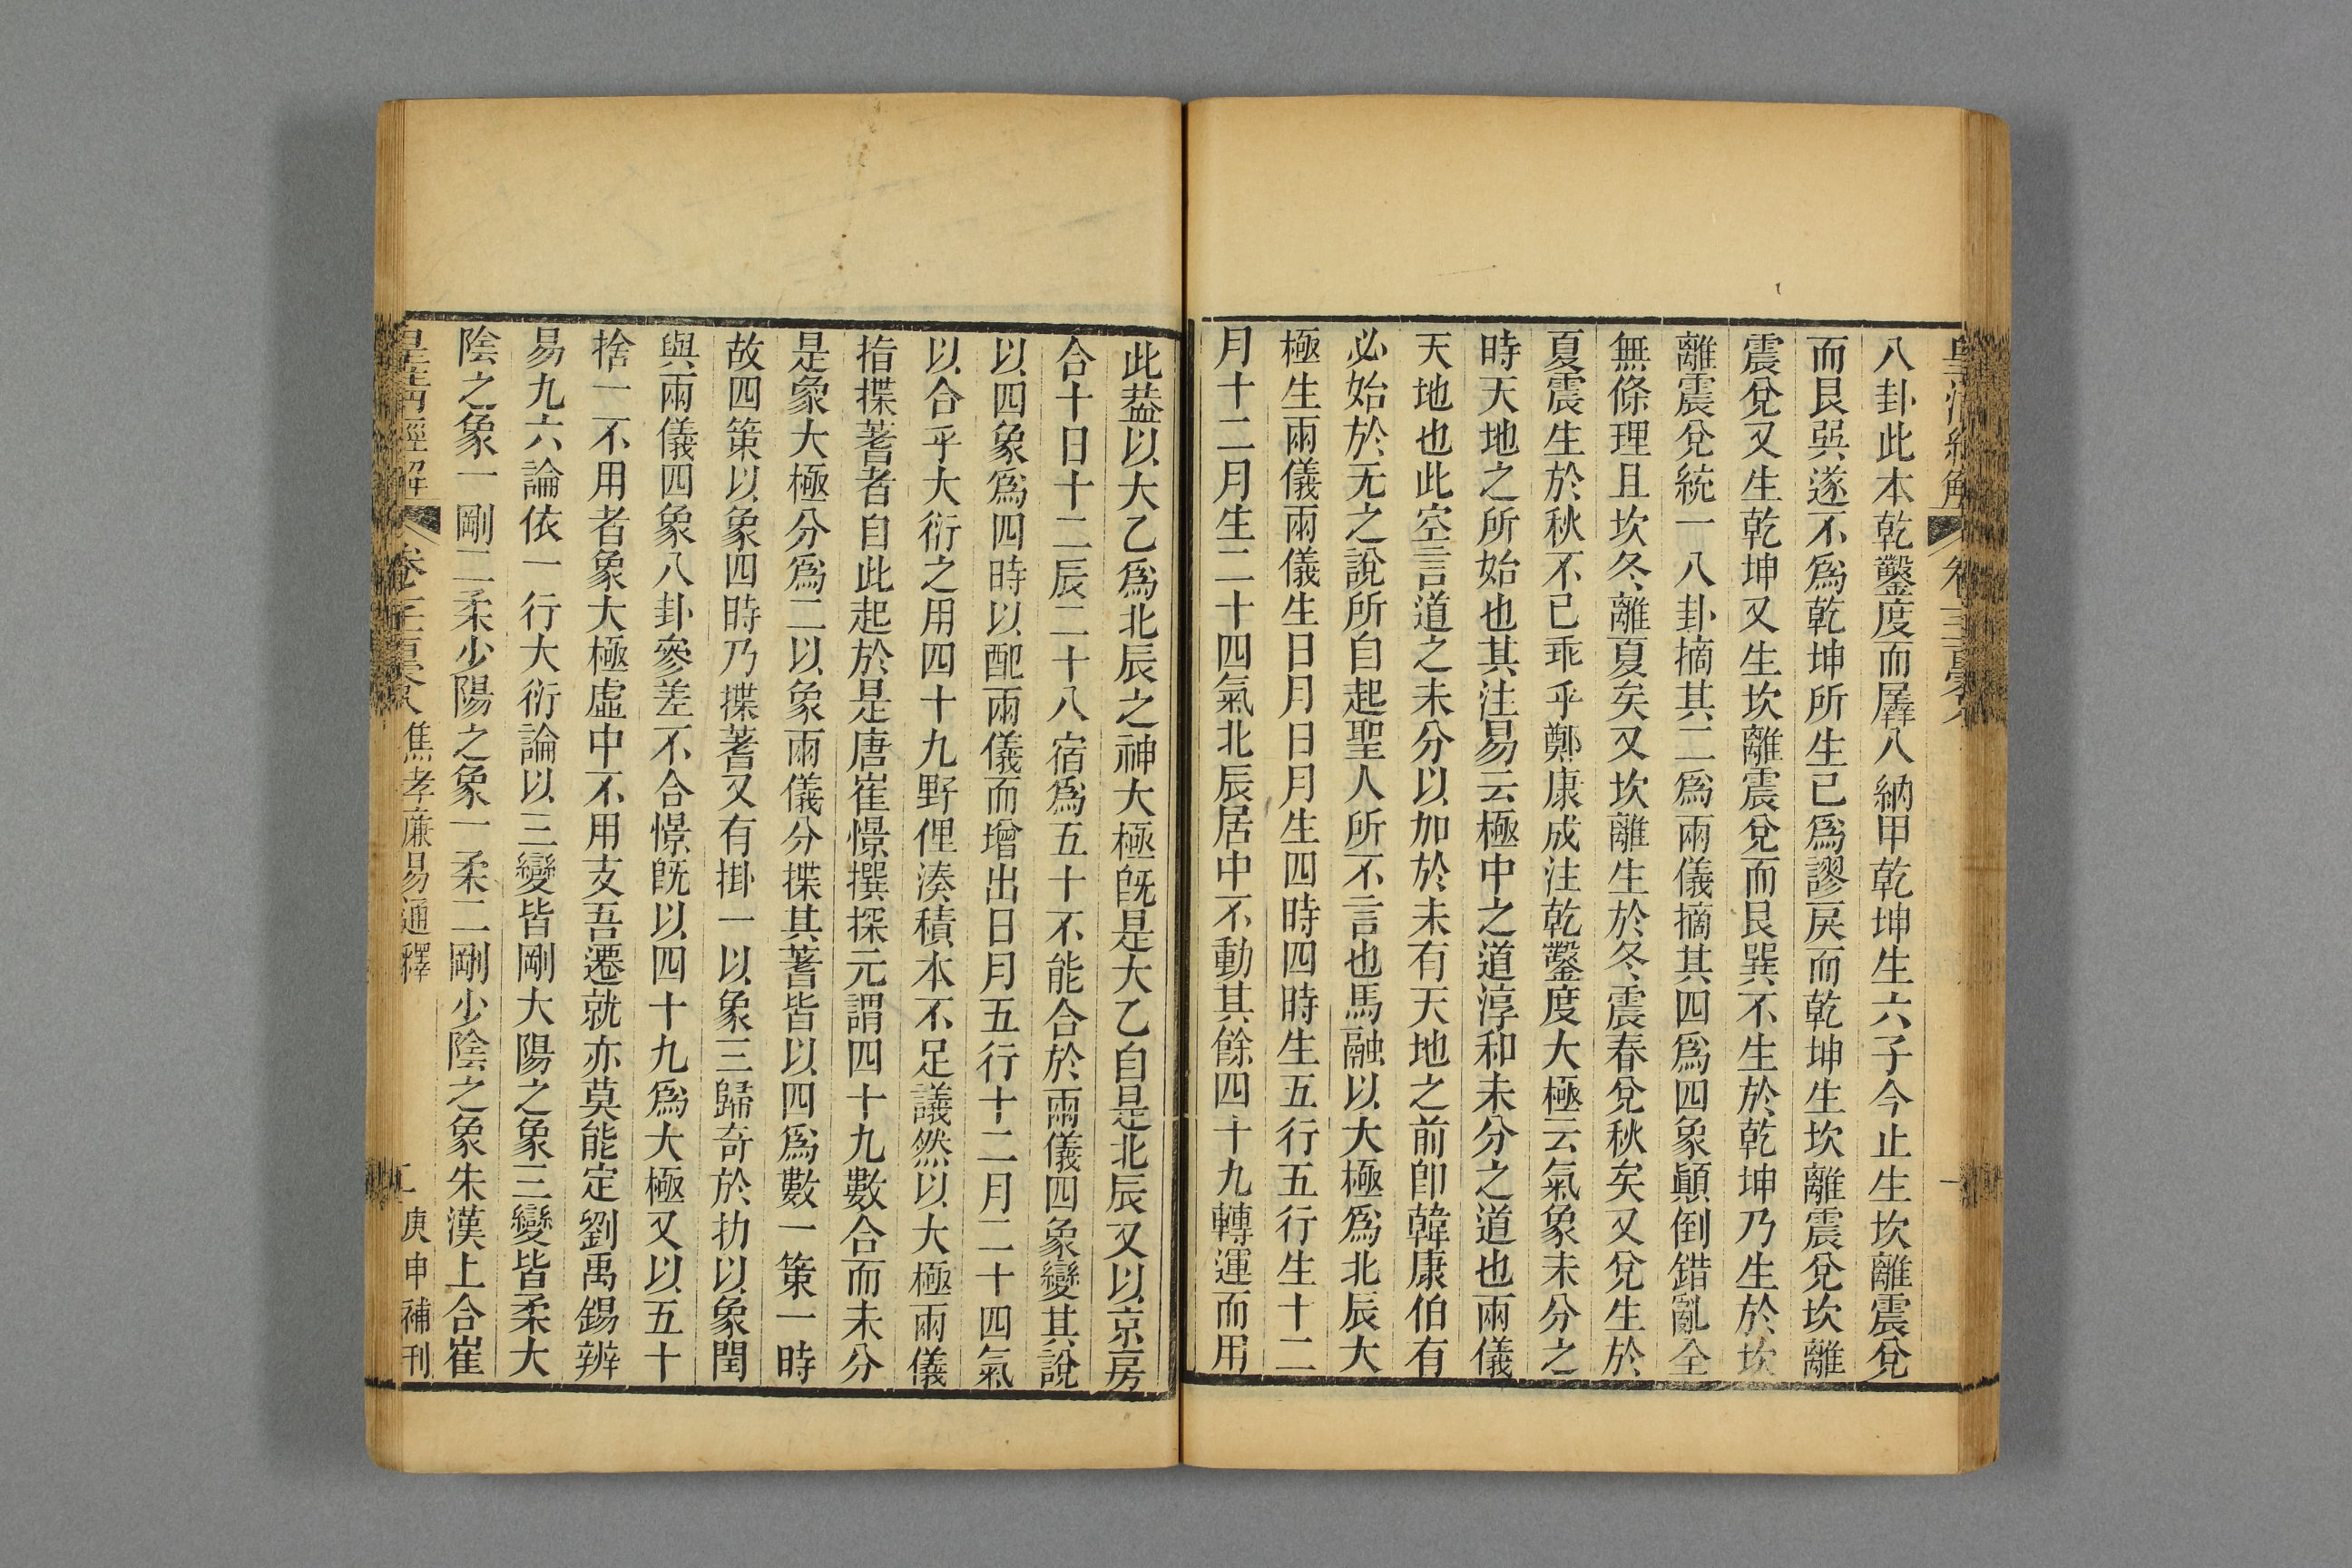 八卦此本乾鑿度而羼入納甲乾坤生六子今止生坎離震兌
而艮巽遂不爲乾坤所生已爲謬戾而乾坤生坎離震兌坎離
震兌又生乾坤又生坎離震兌而艮巽不生於乾坤乃生於坎
離震兌統一八卦摘其二爲兩儀摘其四爲四象顚倒錯亂全
無條理且坎冬離夏矣又坎離生於冬震春兌秋矣又兌生於
夏震生於秋不已乖乎鄭康成注乾鑿度大極云氣象未分之
時天地之所始也其注易云極中之道淳和未分之道也兩儀
天地也此空言道之未分以加於未有天地之前卽韓康伯有
必始於无之說所自起聖人所不言也馬融以大極爲北辰大
極生兩儀兩儀生日月日月生四時四時生五行五行生十二
月十二月生二十四氣北辰居中不動其餘四十九轉運而用
此葢以大乙爲北辰之神大極旣是大乙自是北辰又以京房
合十日十二辰二十八宿爲五十不能合於兩儀四象變其說
以四象爲四時以配兩儀而增出日月五行十二月二十四氣
以合乎大衍之用四十九野俚湊積本不足議然以大極兩儀
指揲蓍者自此起於是唐崔憬撰探元謂四十九數合而未分
是象大極分爲二以象兩儀分揲其蓍皆以四爲數一策一時
故四策以象四時乃揲蓍又有掛一以象三歸奇於扐以象閏
與兩儀四象八卦參差不合憬旣以四十九爲大極又以五十
捨一不用者象大極虛中不用支吾遷就亦莫能定劉禹錫辨
易九六論依一行大衍論以三變皆剛大陽之象三變皆柔大
陰之象一剛二柔少陽之象一柔二剛少陰之象朱漢上合崔
皇淸經解 卷 焦孝廉易通釋 二 庚申補刊